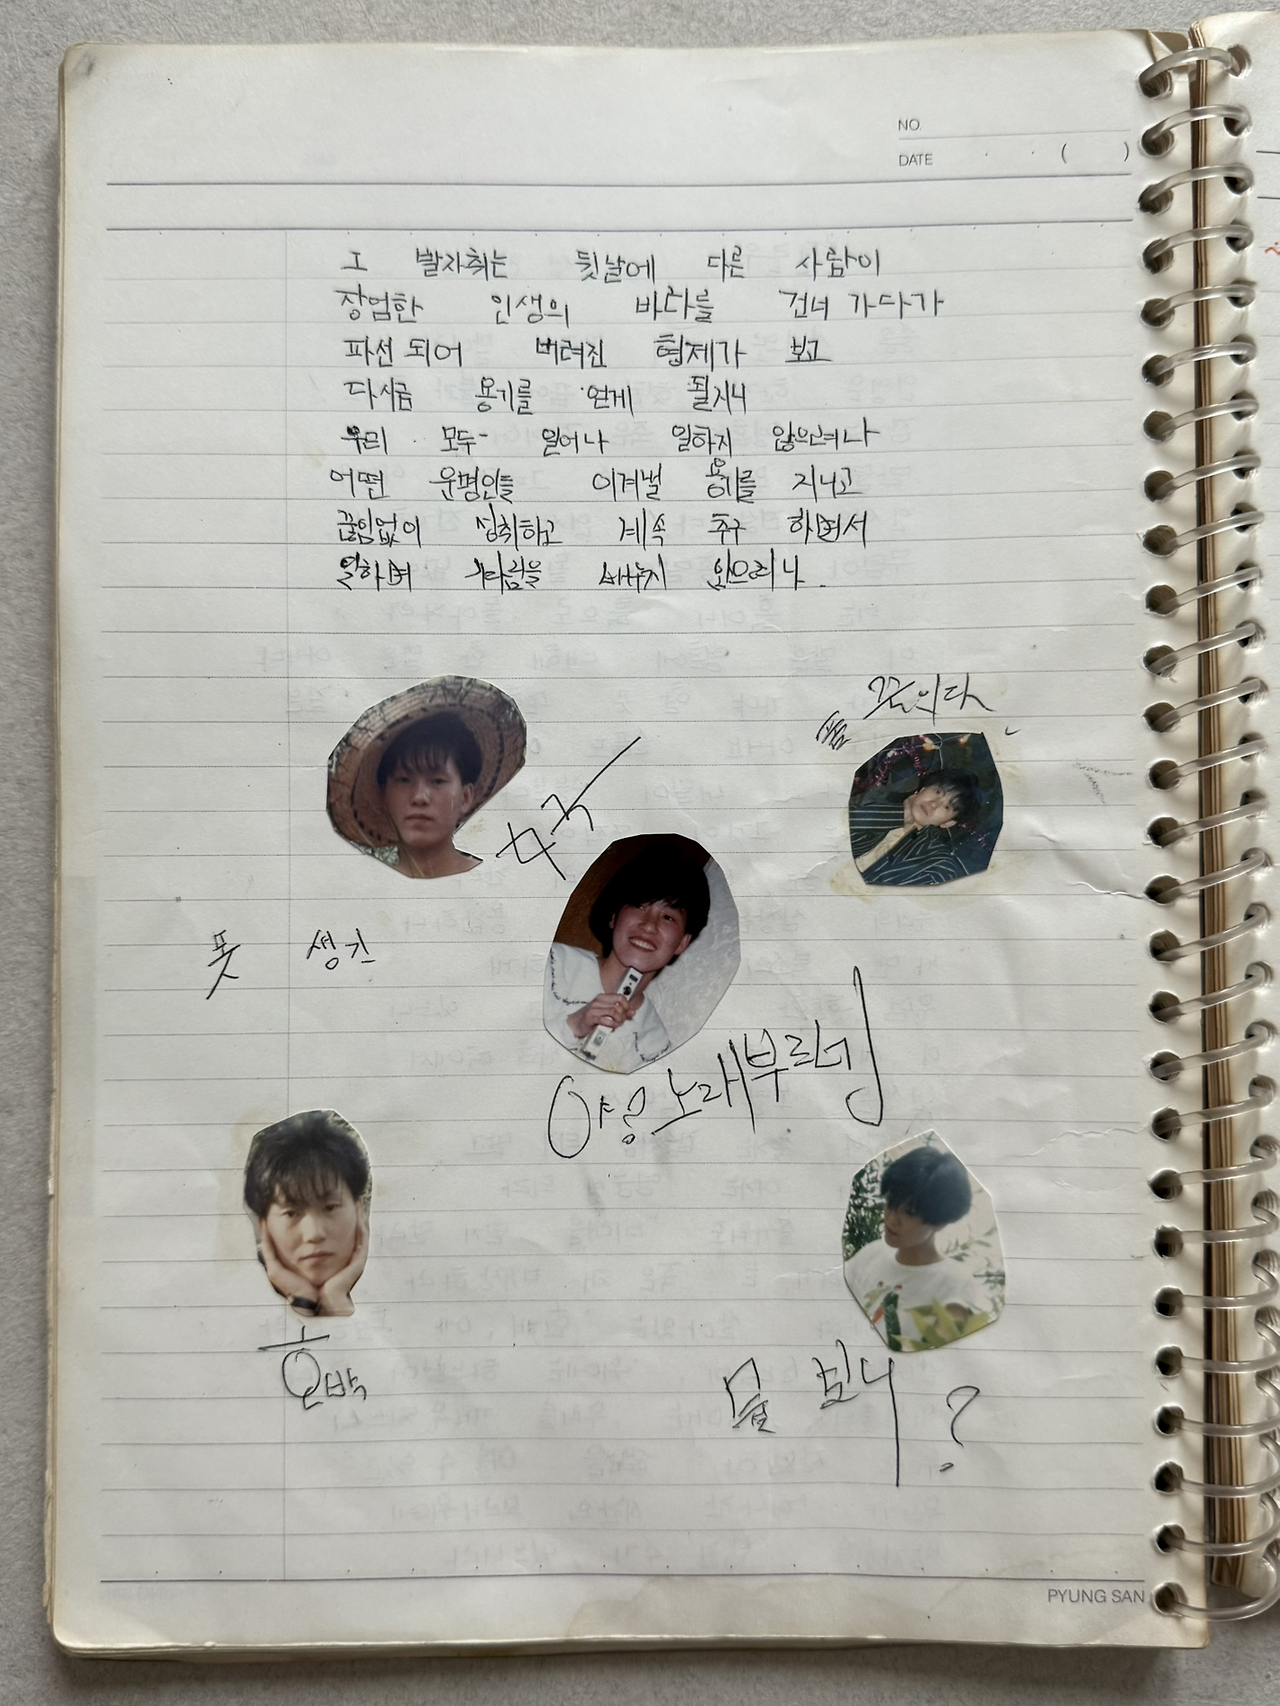 NO.
DATE . . ( )
그 발자취는 뒷날에 다른 사람이
장엄한 인생의 바다를 건너 가다가
파선 되어 버려진 형제가 보고
다시금 용기를 얻게 될지니
우리 모두 일어나 일하지 않으려나
어떤 운명인들 이겨낼 용기를 지니고
끊임없이 성취하고 계속 추구 하면서
일하며 기다림을 배우지 않으려나.
끝이다
폼
못 생긴
야옹 노래부르네
호박
뭘 보니?
PYUNG SAN